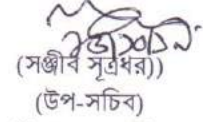 (সঞ্জীব সূত্রধর))
(উপ-সচিব)